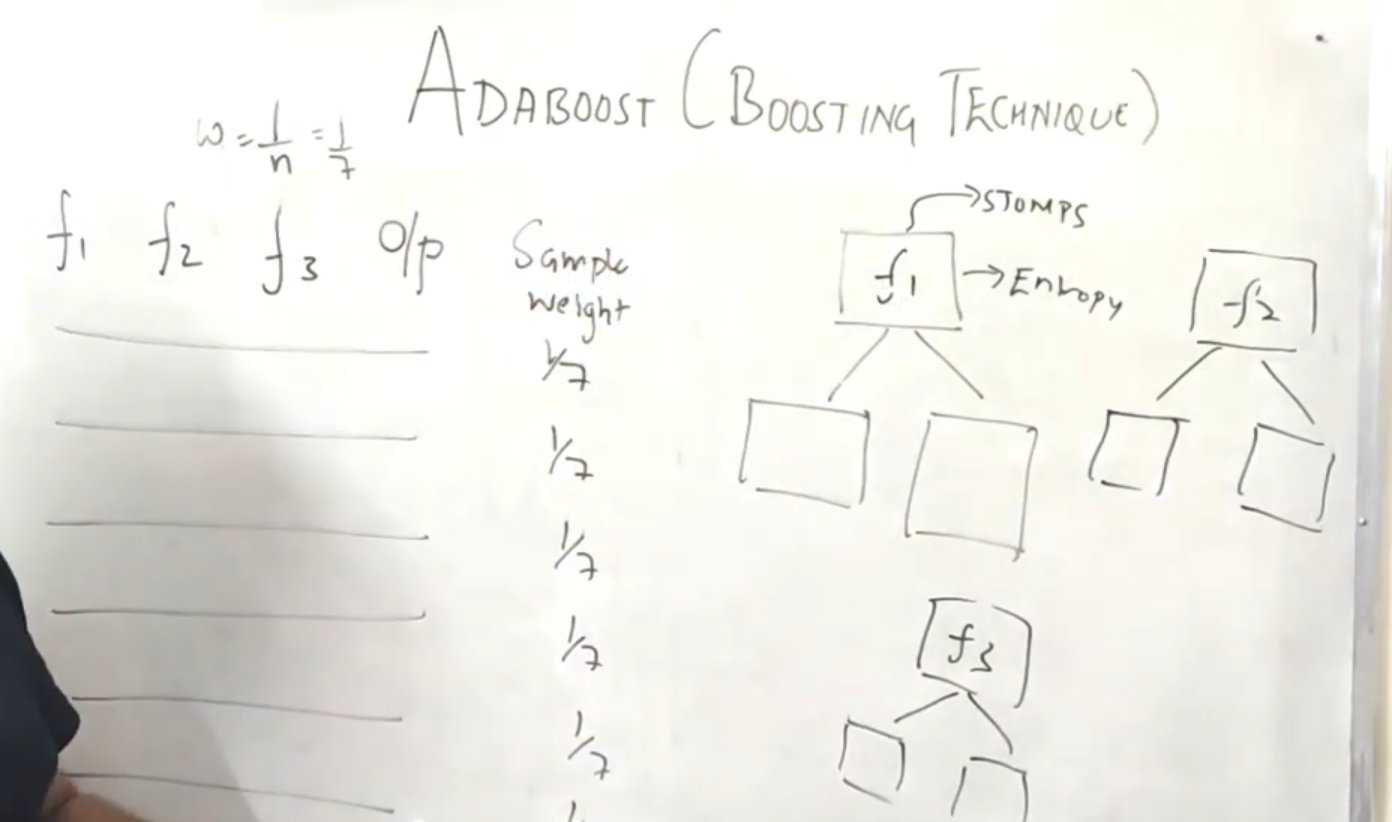 ADABOOST (BOOSTING TECHNIQUE)
w = 1/n = 1/7
f1 f2 f3 O/p Sample weight
1/7
1/7
1/7
1/7
1/7
→STOMPS
f1 →Entropy
f2
f3